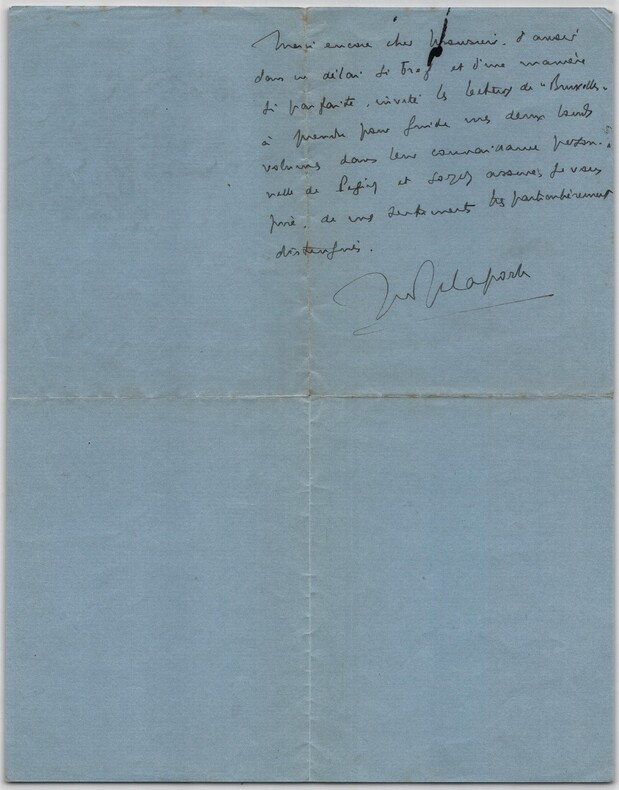 Merci encore cher Monsieur, d'avoir
dans un délai si bref et d'une manière
si parfaite, invité les lecteurs de "Bruxelles"
à prendre pour guide mes deux lourds
volumes dans leur connaissance person-
nelle de Péguy et soyez assuré, je vous
prie, de mes sentiments très particulièrement
distingués.
Delaporte